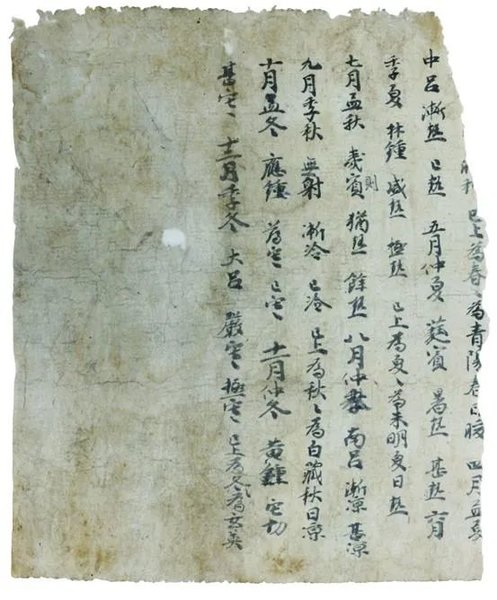 已上為春〻為青陽春日暖 四月孟夏
中呂 漸熱 已熱 五月仲夏 蕤賓 暑熱 甚熱 六月
季夏 林鍾 盛熱 極熱 已上為夏〻為朱明夏日熱
七月孟秋 夷賓則 猶熱 餘熱 八月仲秋 南呂 漸凉 甚凉
九月季秋 無射 漸冷 已冷 已上為秋〻為白藏秋日凉
十月孟冬 應鍾 寒 已寒 十一月仲冬 黃鍾 寒切
甚寒 十二月季冬 大呂 嚴寒 極寒 已上為冬為玄英